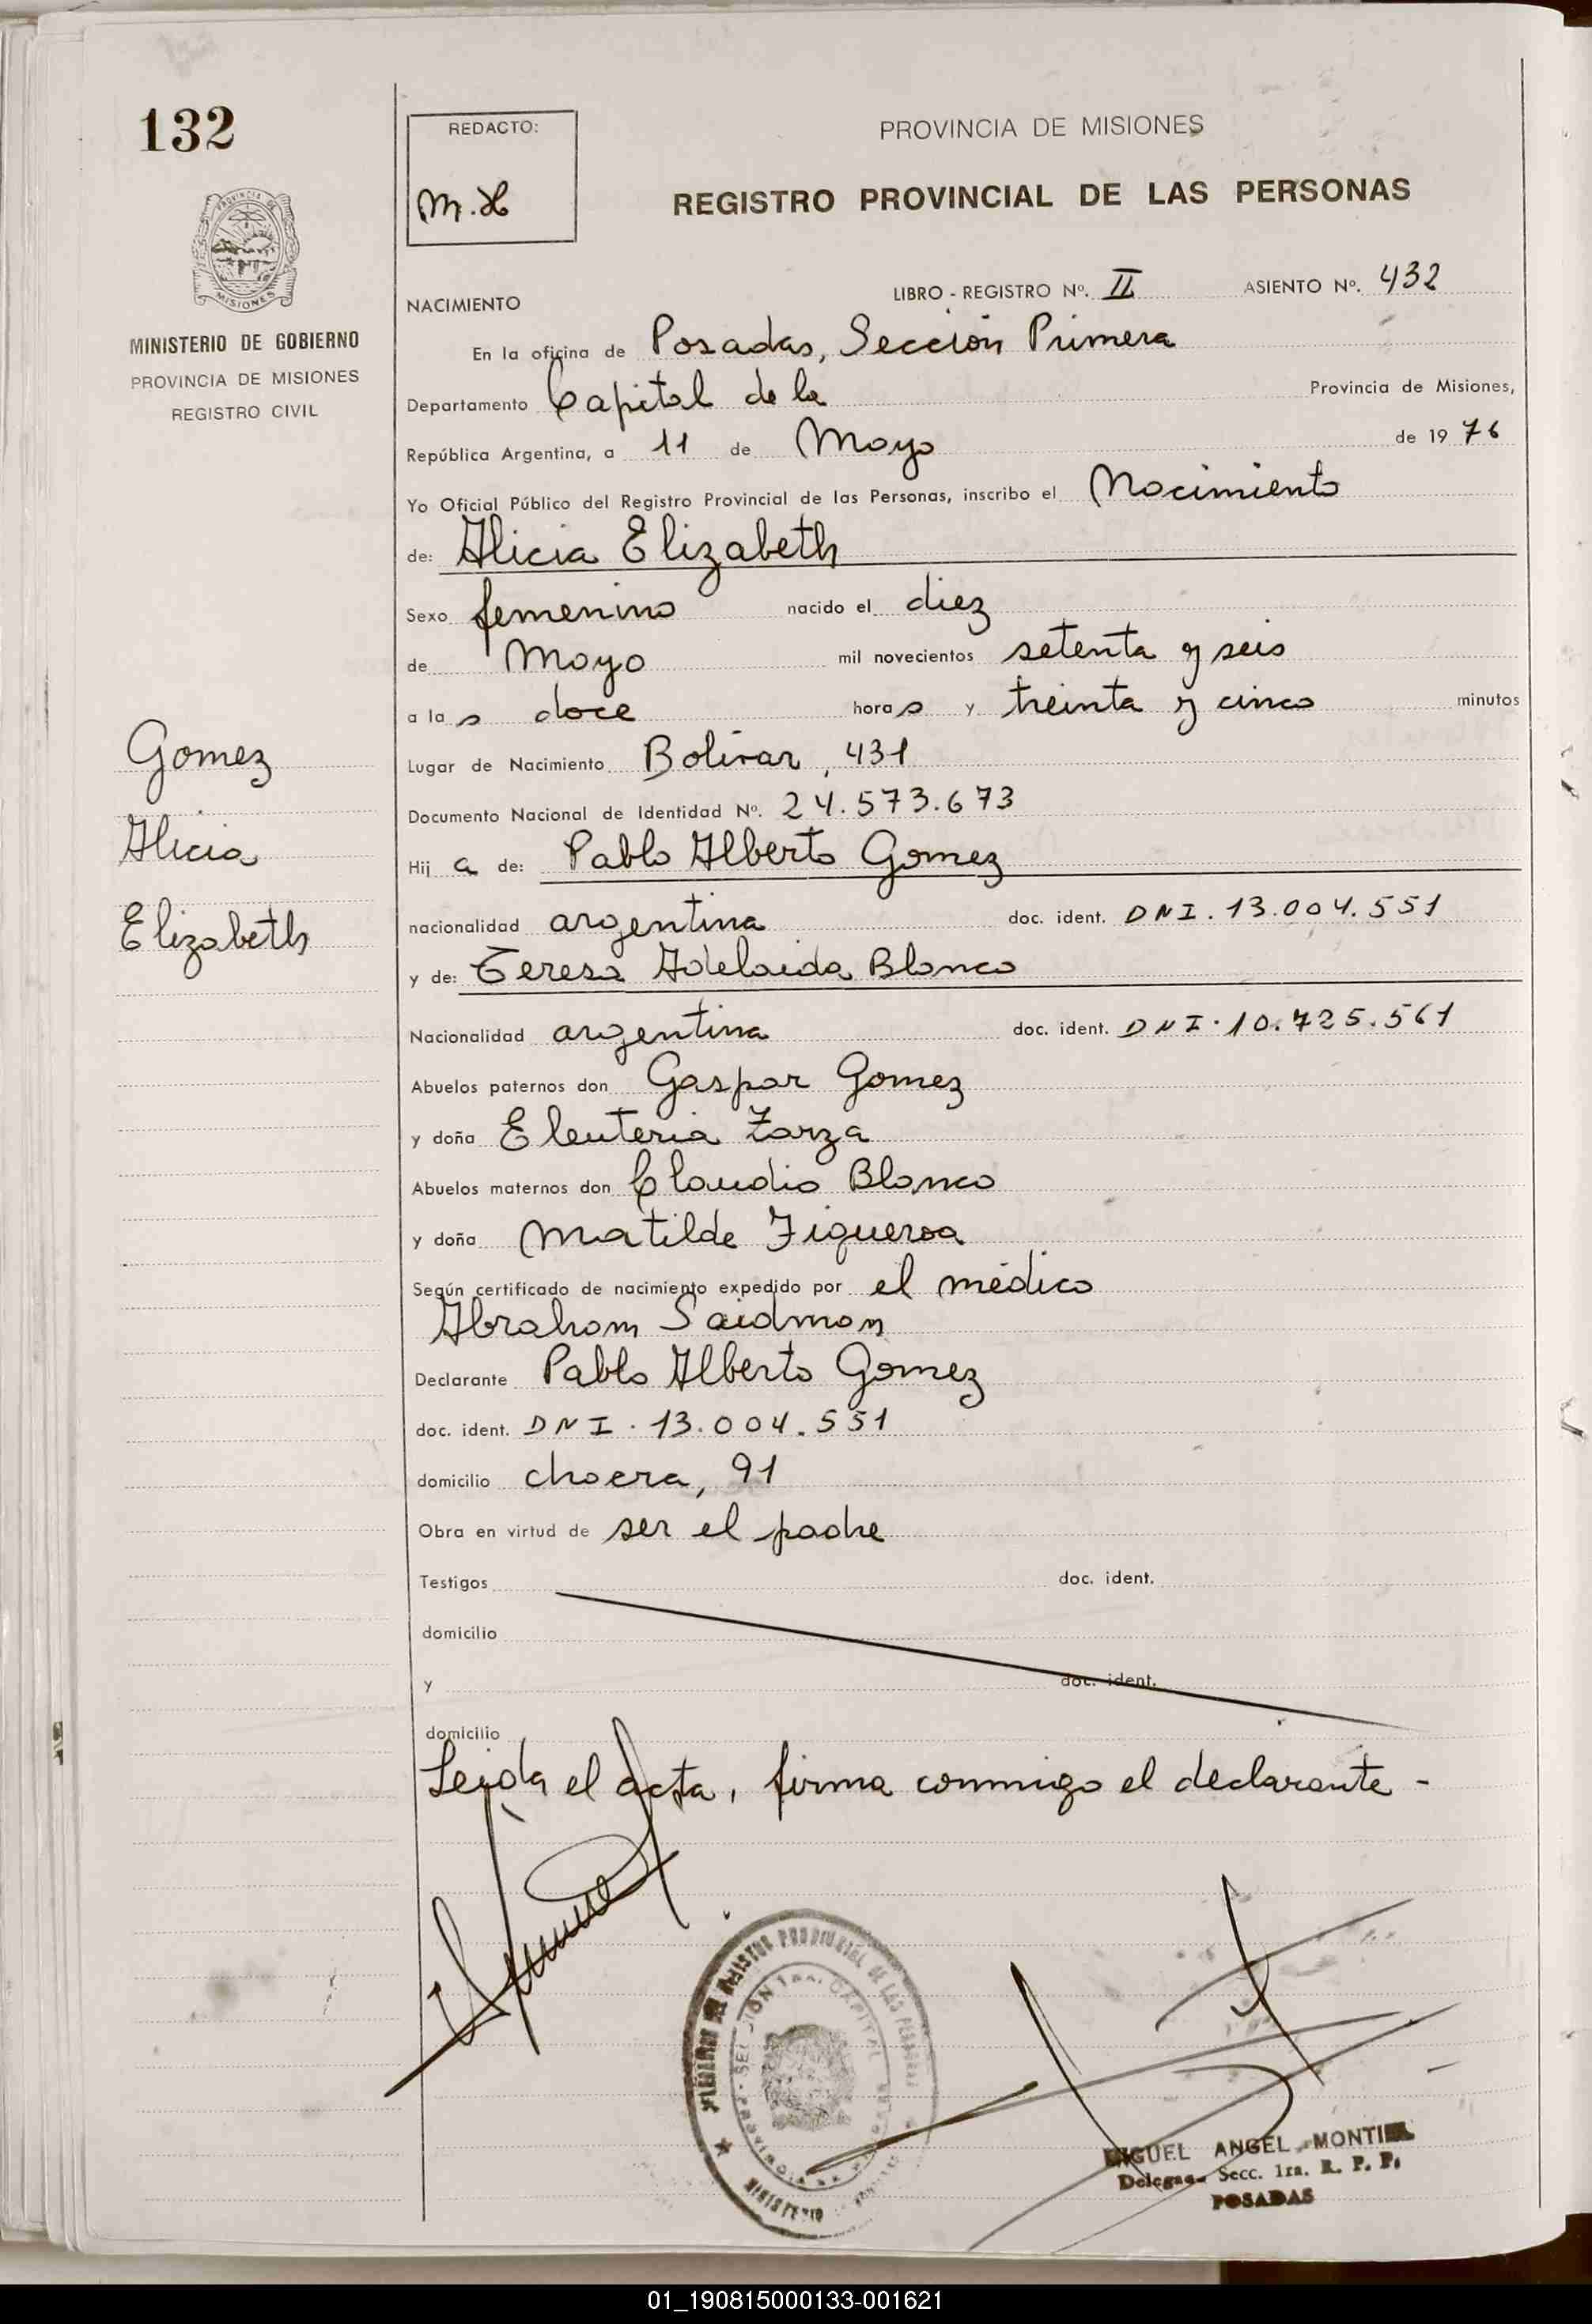 132
REDACTO:
M.H
PROVINCIA DE MISIONES
REGISTRO PROVINCIAL DE LAS PERSONAS
MISIONES
MINISTERIO DE GOBIERNO
PROVINCIA DE MISIONES
REGISTRO CIVIL
NACIMIENTO
LIBRO - REGISTRO Nº. II ASIENTO Nº. 432
En la oficina de Posadas, Sección Primera
Departamento Capital de la Provincia de Misiones,
República Argentina, a 11 de Mayo de 19 76
Yo Oficial Público del Registro Provincial de las Personas, inscribo el Nacimiento
de: Alicia Elizabeth
Sexo femenino nacido el diez
de Mayo mil novecientos setenta y seis
a la s doce hora s y treinta y cinco minutos
Gomez
Alicia
Elizabeth
Lugar de Nacimiento Bolívar, 431
Documento Nacional de Identidad Nº. 24.573.673
Hij a de: Pablo Alberto Gomez
nacionalidad argentina doc. ident. DNI. 13.004.551
y de: Teresa Adelaida Blanco
Nacionalidad argentina doc. ident. DNI. 10.725.561
Abuelos paternos don Gaspar Gomez
y doña Eleuteria Zarza
Abuelos maternos don Claudio Blanco
y doña Matilde Figueroa
Según certificado de nacimiento expedido por el médico
Abraham Saidman
Declarante Pablo Alberto Gomez
doc. ident. DNI. 13.004.551
domicilio chacra, 91
Obra en virtud de ser el padre
Testigos doc. ident.
domicilio
y doc. ident.
domicilio
Leida el acta, firma conmigo el declarante -
REGISTRO PROVINCIAL DE LAS PERSONAS
CAPITAL
MIGUEL ANGEL MONTIEL
Delegado Secc. 1ra. R. P. P.
POSADAS
01_190815000133-001621